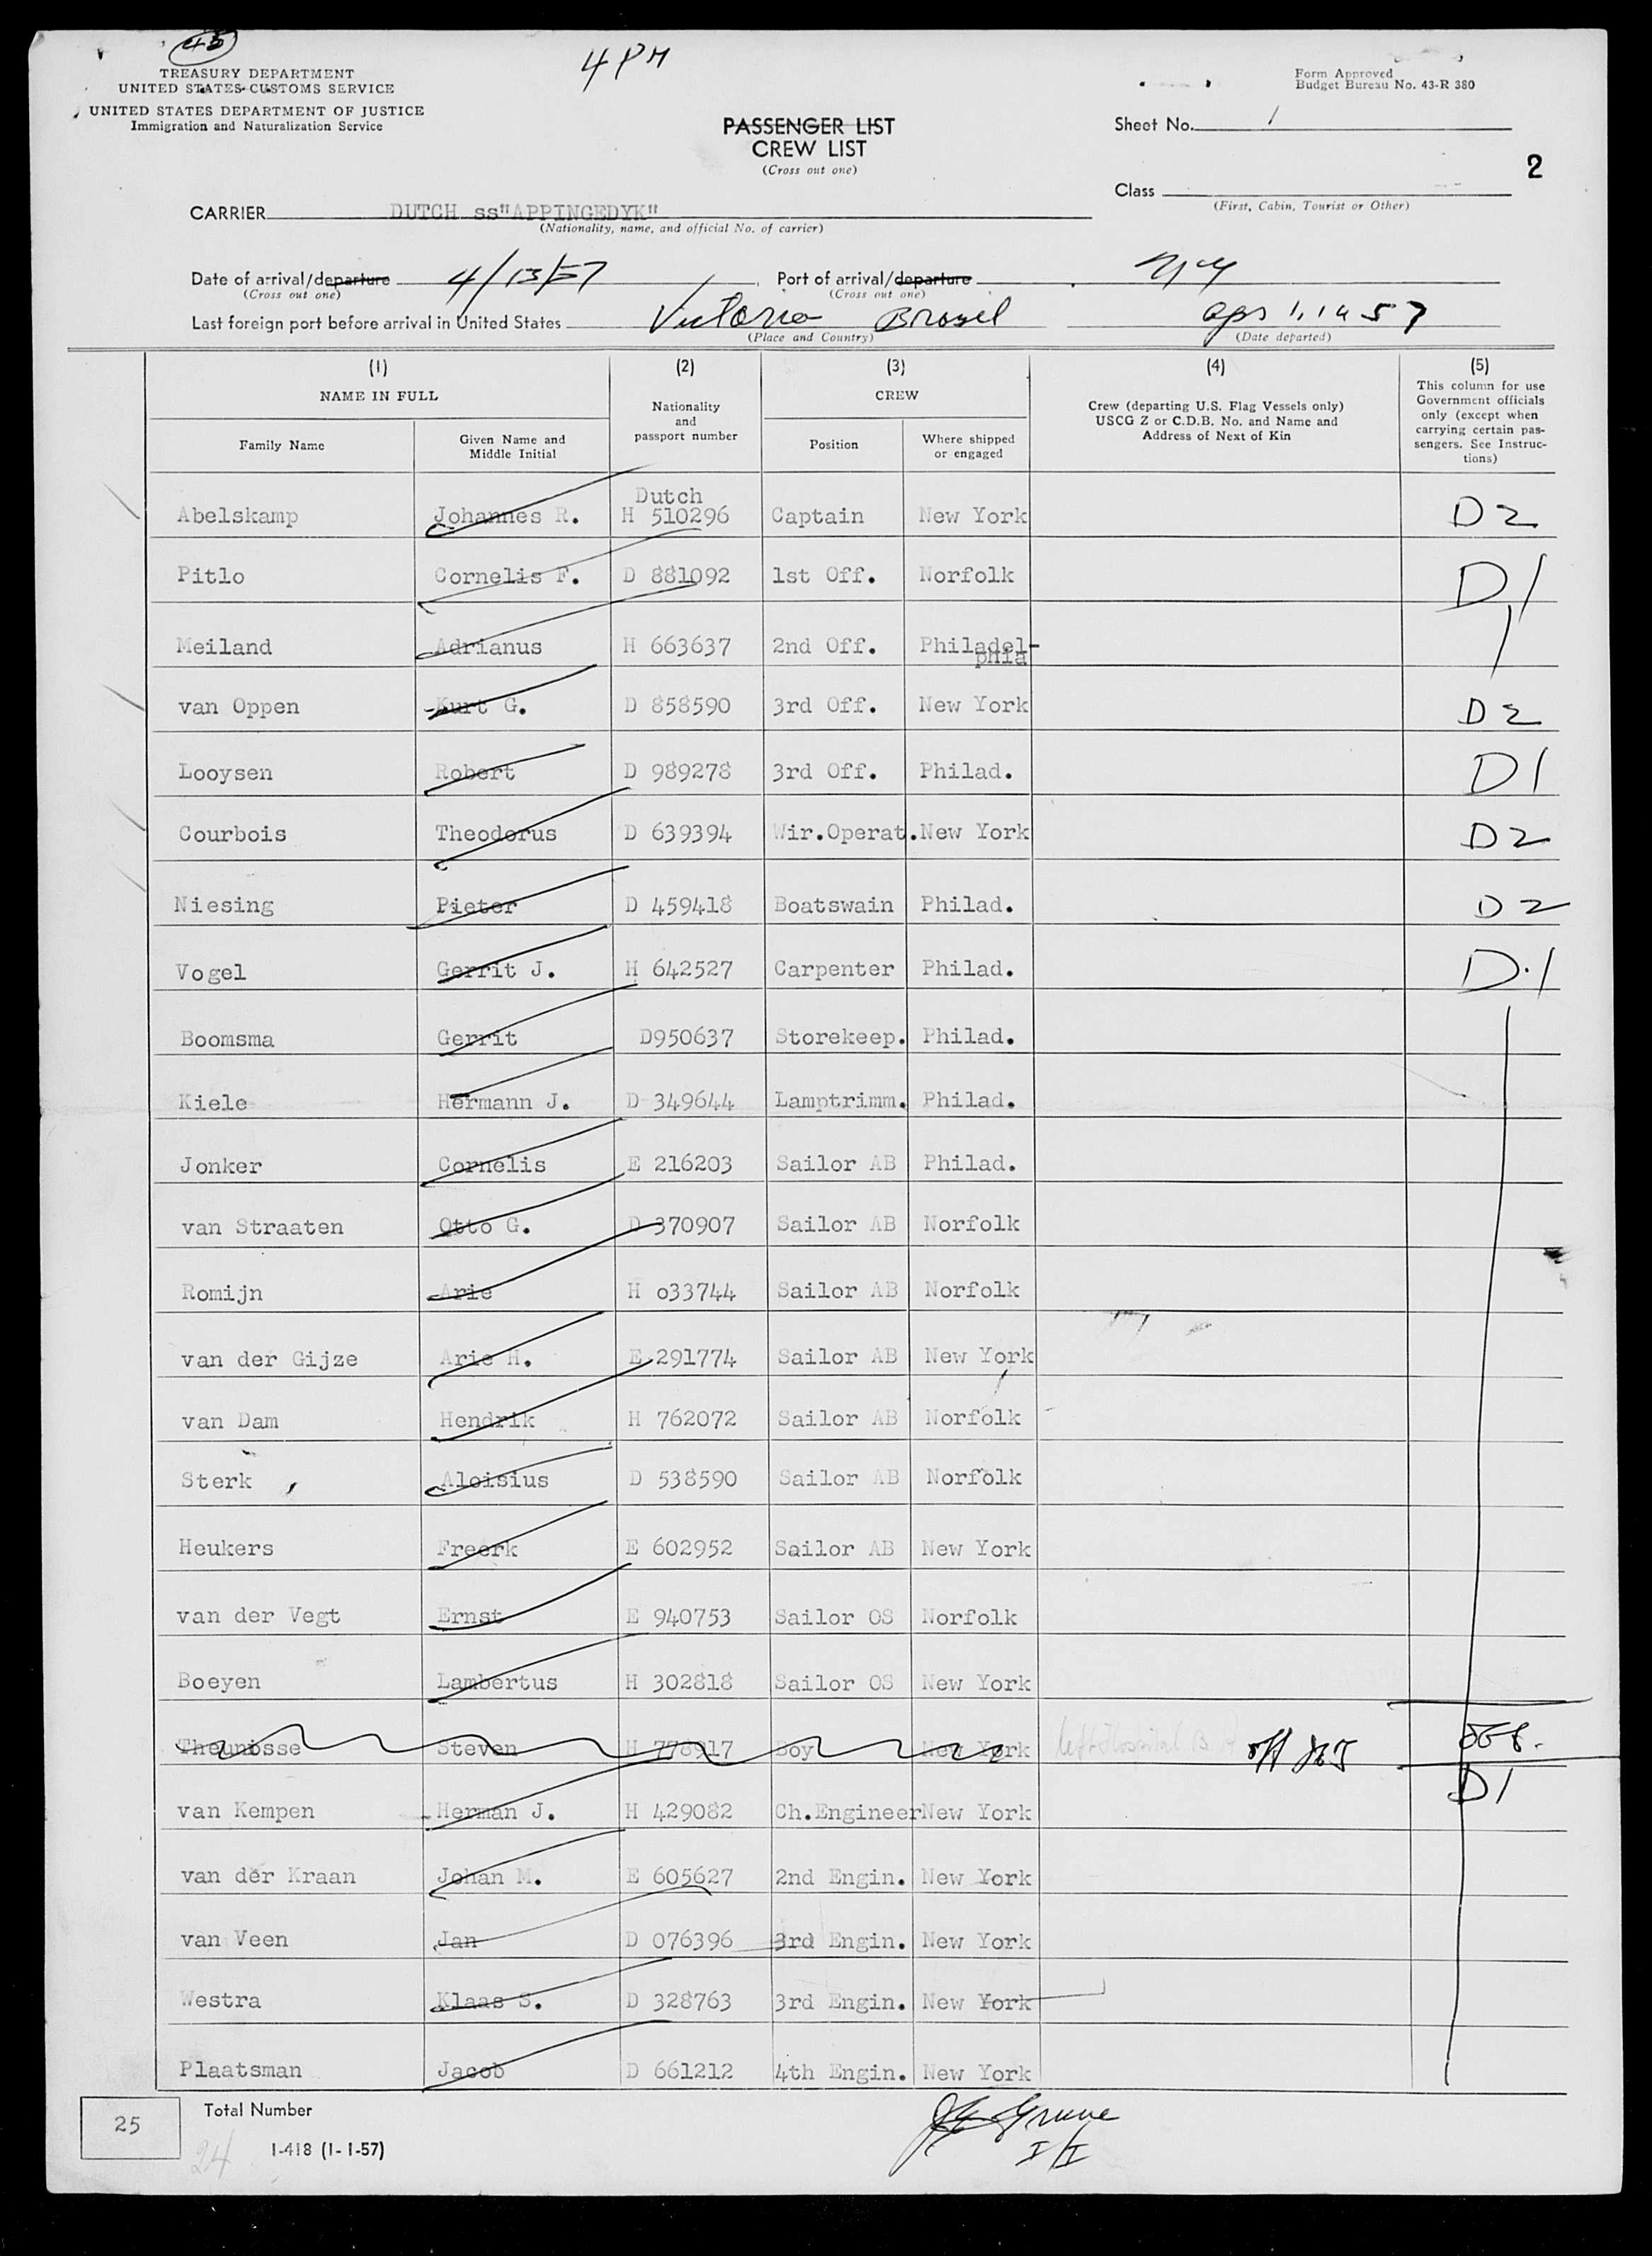 45
4 PM
TREASURY DEPARTMENT
UNITED STATES CUSTOMS SERVICE
UNITED STATES DEPARTMENT OF JUSTICE
Immigration and Naturalization Service
Form Approved
Budget Bureau No. 43-R 380
PASSENGER LIST
CREW LIST
(Cross out one)
Sheet No. 1
2
Class
(First, Cabin, Tourist or Other)
CARRIER DUTCH ss"APPINGEDYK"
(Nationality, name, and official No. of carrier)
Date of arrival/departure 4/13/57 Port of arrival/departure NY
(Cross out one) (Cross out one)
Last foreign port before arrival in United States Victoria Brasil apr 1, 1957
(Place and Country) (Date departed)
(1) (2) (3) (4) (5)
NAME IN FULL
Family Name
Given Name and
Middle Initial
Nationality
and
passport number
CREW
Position
Where shipped
or engaged
Crew (departing U.S. Flag Vessels only)
USCG Z or C.D.B. No. and Name and
Address of Next of Kin
This column for use
Government officials
only (except when
carrying certain pas-
sengers. See Instruc-
tions)
Dutch
Abelskamp Johannes R. H 510296 Captain New York D2
Pitlo Cornelis F. D 881092 1st Off. Norfolk D1
Meiland Adrianus H 663637 2nd Off. Philadel-
phia
van Oppen Kurt G. D 858590 3rd Off. New York D2
Looysen Robert D 989278 3rd Off. Philad. D1
Courbois Theodorus D 639394 Wir.Operat. New York D2
Niesing Pieter D 459418 Boatswain Philad. D2
Vogel Gerrit J. H 642527 Carpenter Philad. D.1
Boomsma Gerrit D950637 Storekeep. Philad.
Kiele Hermann J. D 349644 Lamptrimm. Philad.
Jonker Cornelis E 216203 Sailor AB Philad.
van Straaten Otto G. D 370907 Sailor AB Norfolk
Romijn Arie H o33744 Sailor AB Norfolk
van der Gijze Arie H. E 291774 Sailor AB New York
van Dam Hendrik H 762072 Sailor AB Norfolk
Sterk Aloisius D 538590 Sailor AB Norfolk
Heukers Freerk E 602952 Sailor AB New York
van der Vegt Ernst E 940753 Sailor OS Norfolk
Boeyen Lambertus H 302818 Sailor OS New York
Theunisse Steven H 778917 Boy New York left Hospital B A off
van Kempen Herman J. H 429082 Ch.Engineer New York D1
van der Kraan Johan M. E 605627 2nd Engin. New York
van Veen Jan D 076396 3rd Engin. New York
Westra Klaas S. D 328763 3rd Engin. New York
Plaatsman Jacob D 661212 4th Engin. New York
25
Total Number
24
I-418 (1-1-57)
I/I